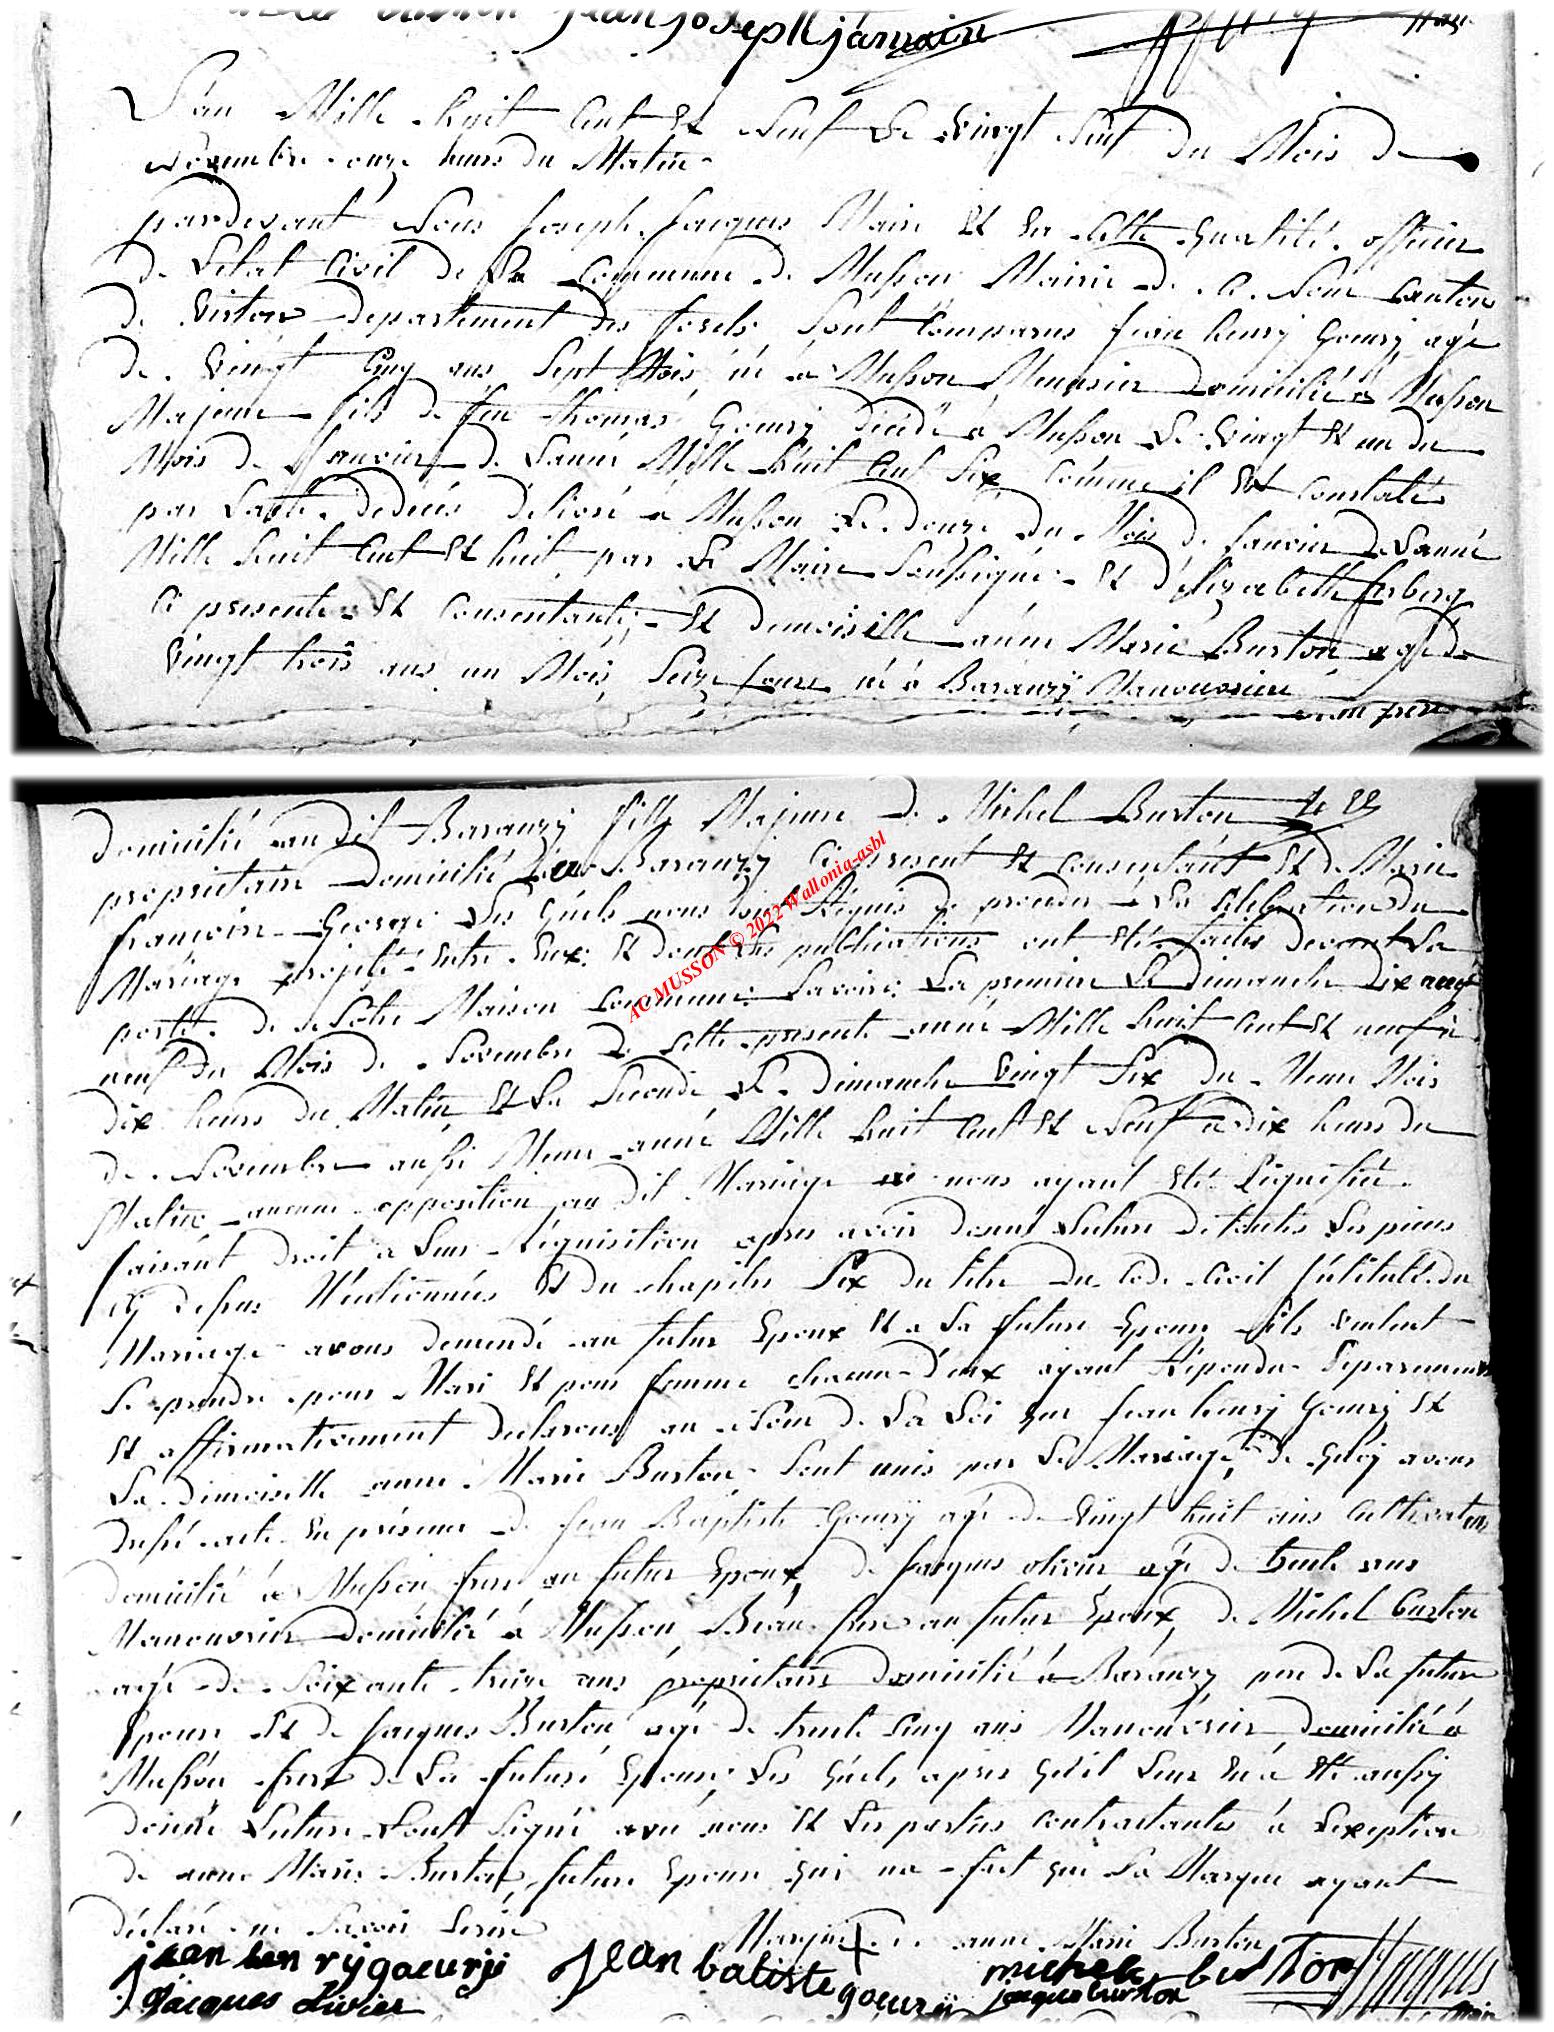 jean joseph jamain
L'an Mille huit Cent Et Neuf Le vingt Sept du Mois de
Novembre onze heures du Matin
pardevant Nous Joseph Jacques Maire Et en Cette qualité officier
de L'etat Civil de La Commune de Musson Mairie de Ce Nom Canton
de Virton departement des forets Sont Comparus jean henry Goury agé
de Vingt Cinq ans Sept Mois né à Musson Menusier domicilié à Musson
Majeur fils de feu thomas Goury décédé à Musson Le Vingt Et un du
Mois de Janvier de L'année Mille huit Cent Six Comme il Est Constaté
par L'acte de décés délivré à Musson Le douze du Mois de Janvier de L'année
Mille huit Cent Et huit par Le Maire Soussigné Et d'Elizabette
Ci presente Et Consentante Et demoiselle anne Marie Burton agé de
Vingt trois ans un Mois Seize jours né à Baranzÿ Manouvriere
domicilié au dit Baranzÿ fille Majeure de Michel Burton
proprietaire domicilié à Baranzÿ Ci present Et Consentant Et de Marie
françoise George Les quels nous ont Requis de proceder à La Célébration du
Mariage projeté Entre Eux Et dont les publications ont été faites devant La
porte de Notre Maison Commune Savoir La premiere Le dimanche dix neuf
neuf du Mois de Novembre de Cette presente année Mille huit Cent Et neuf à
dix heures du Matin Et La Seconde Le dimanche Vingt Six du Meme Mois
de Novembre aussi Meme année Mille huit Cent Et Neuf à dix heures du
Matin aucune opposition au dit Mariage ne nous ayant Eté Signifiée
faisant droit à Leur Réquisition apres avoir donné Lecture de toutes Les pieces
Cy dessus Mentionnées Et du chapitre Six du titre du Code Civil intitulé du
Mariage avons demendé au futur Epoux Et a La future Epouse s'ils veulent
Se prendre pour Mari Et pour femme chacun d'eux ayant Répondu Séparement
Et affirmativement declarons au Nom de La Loi que jean henry Goury Et
La dimoiselle anne Marie Burton Sont unis par Le Mariage de quoy avons
dressé acte En présence de jean Baptiste Goury agé de Vingt huit ans Cultivateur
domicilié à Musson frere au futur Epoux, de Jacques olivier agé de trente ans
Manouvrier domicilié à Musson Beau frere au futur Epoux, de Michel Burton
agé de Soixante treize ans proprietaire domicilié à Baranzy pere de La future
Epouse Et de Jacques Burton agé de trente Cinq ans Manouvrier domicilié à
Musson frere de La future Epouse Les quels apres qu'il Leur En a Eté aussy
donné Lecture L'ont Signé avec nous Et Les parties Contractantes à L'exeption
de anne Marie Burton future Epouse qui n'a fait que Sa Marque ayant
déclaré ne Savoir Ecrire
Marque de anne Marie Burton
jean hen ry goeury jean batiste goeurÿ michele burton Jacques
jacques Livier jacque burton Maire
AC MUSSON © 2022 Wallonia-asbl